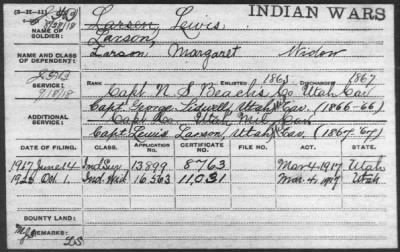 (3-II-III)
INDIAN WARS
NAME OF SOLDIER:
Larsen, Lewis
Larson,
NAME AND CLASS OF DEPENDENT:
Larson Margaret Widow
SERVICE:
RANK ENLISTED 1865 DISCHARGED 1867
Capt. N. S. Beach's Co Utah Cav
ADDITIONAL SERVICE:
Capt. George Sidwell, Utah Cav. (1866-66)
Capt. Co. Utah Mil. Cav
Capt. Lewis Larson, Utah Cav. (1867-67)
DATE OF FILING. CLASS. APPLICATION NO. CERTIFICATE NO. FILE NO. ACT. STATE.
1917 June 14 Ind Sur. 13899 8763 Mar 4-1917 Utah
Oct. 1. Ind. Wid. 16,563 11,031 Mar. 4, 1917 Utah
BOUNTY LAND:
REMARKS: